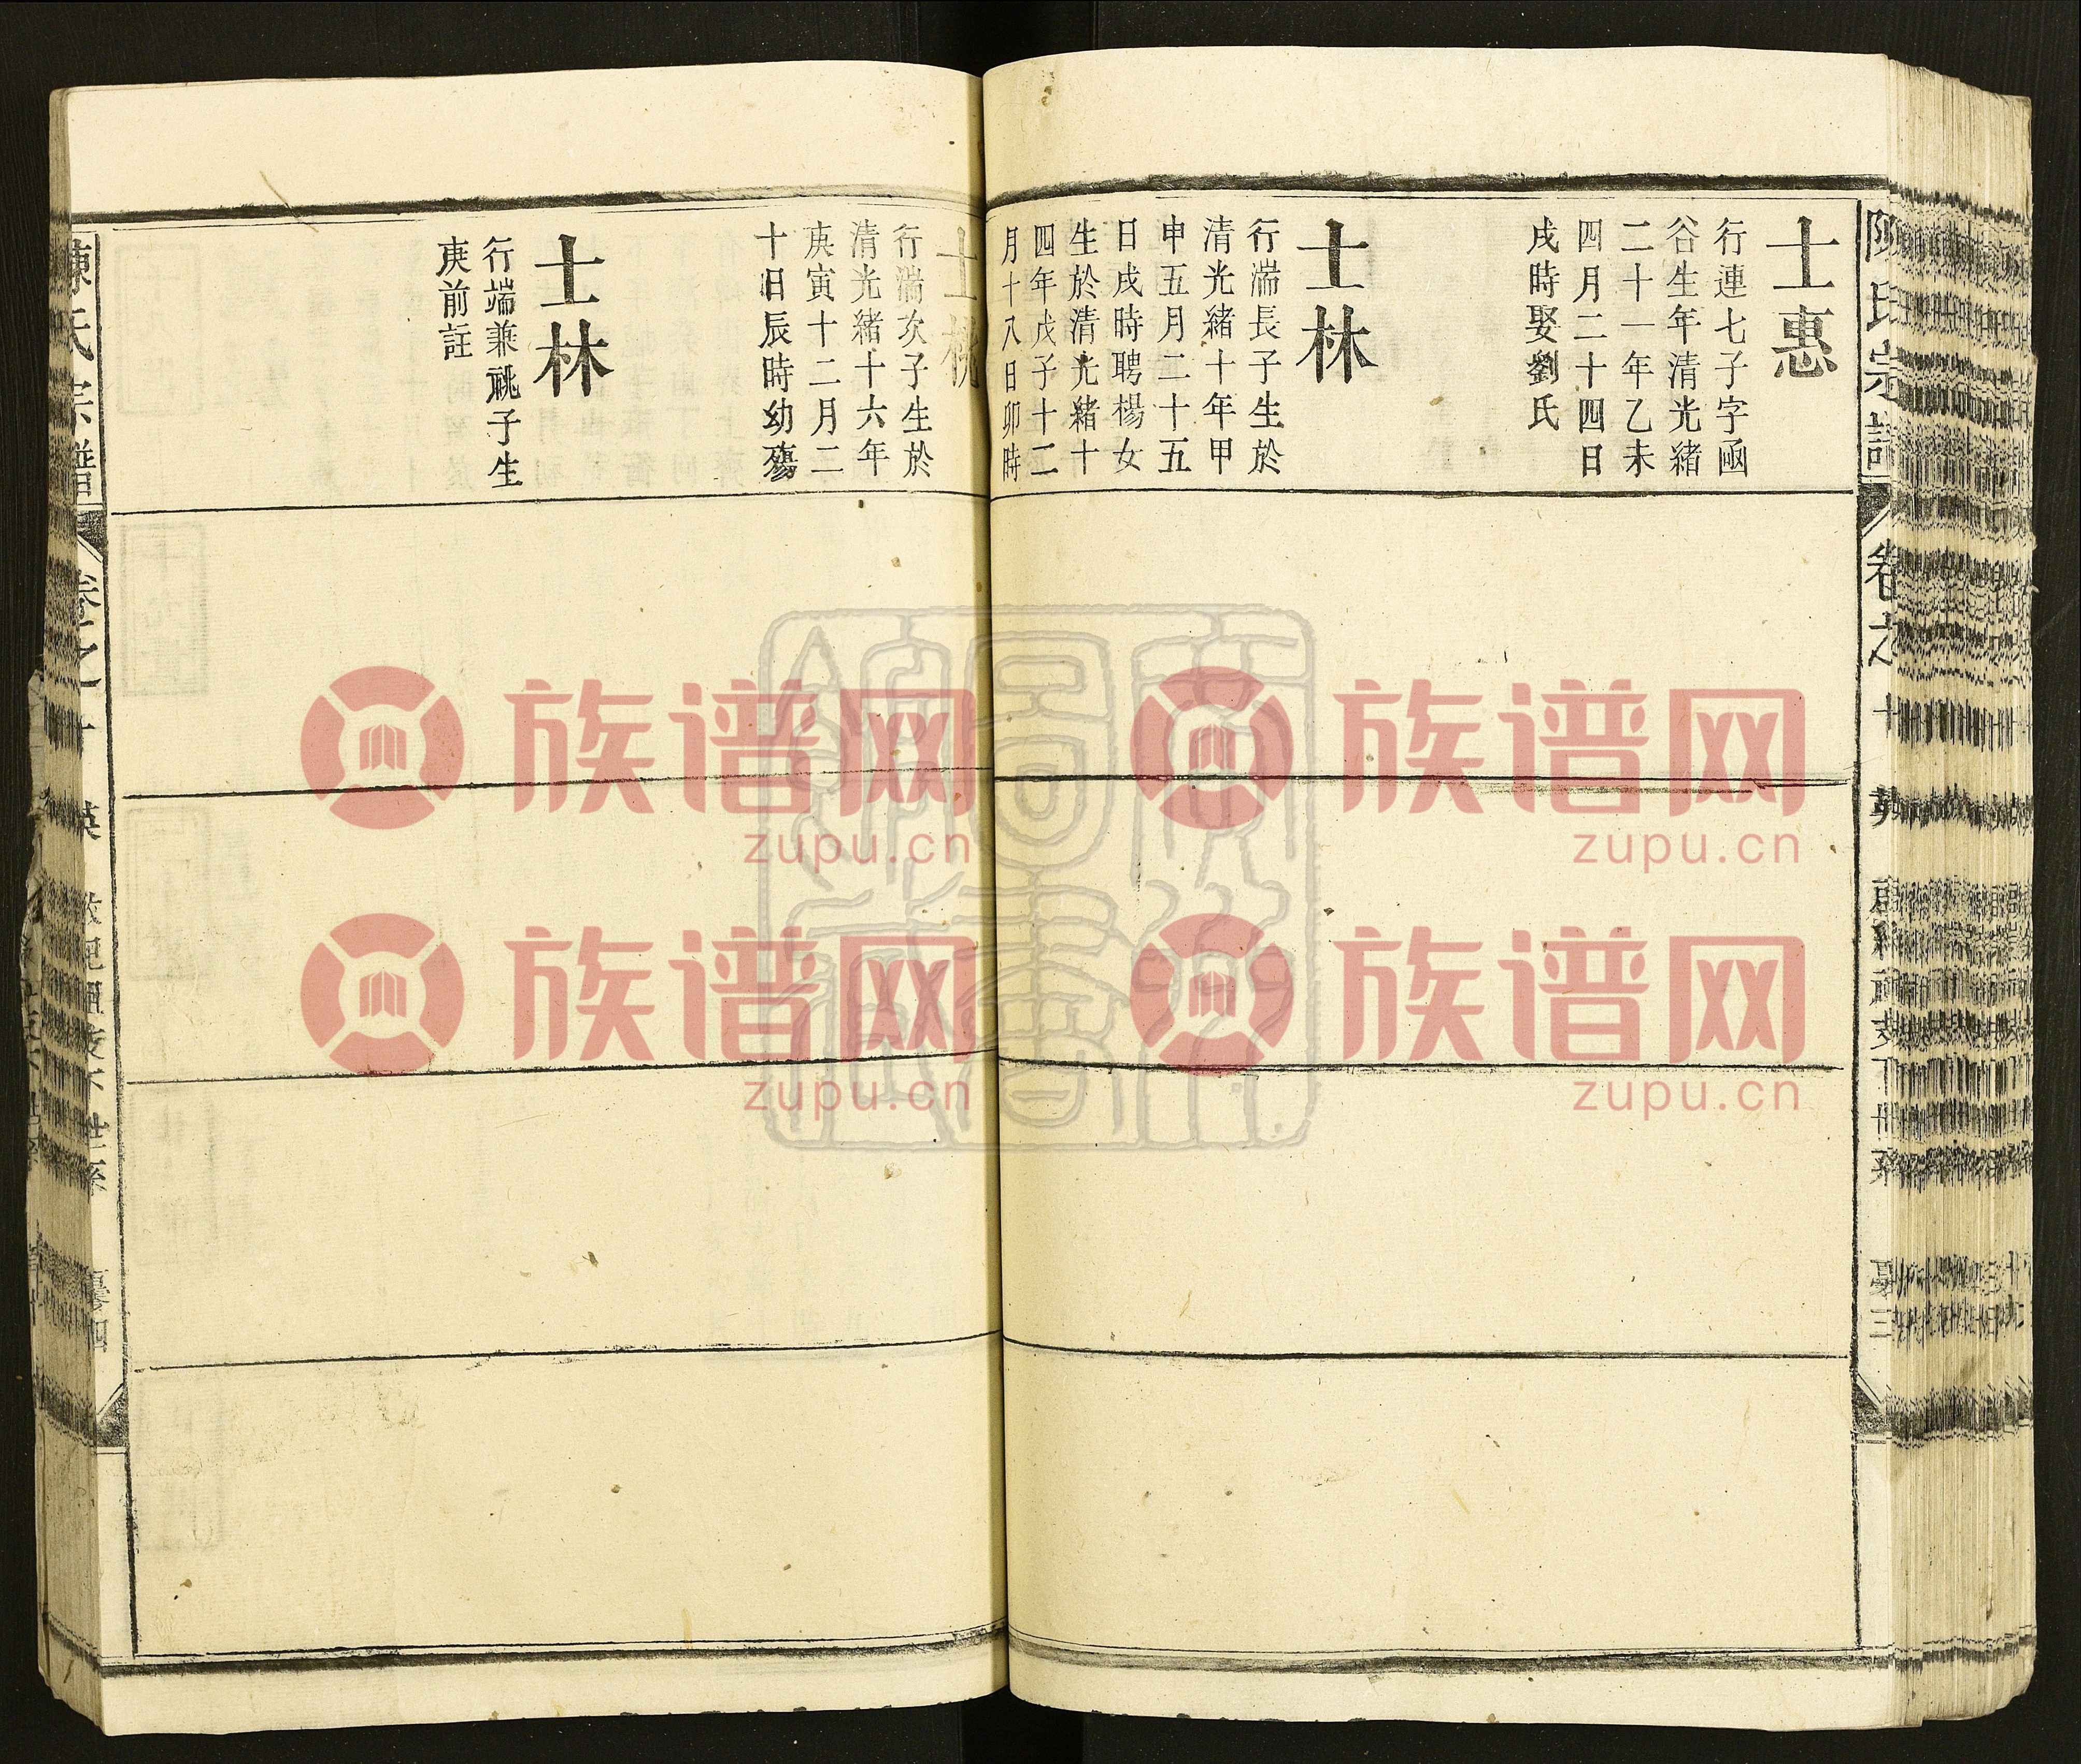 士惠
行連七子字凾
谷生年清光緒
二十一年乙未
四月二十四日
戌時娶劉氏
士林
行湍長子生於
清光緒十年甲
申五月二十五
日戌時聘楊女
生於清光緒十
四年戊子十二
月十八日卯時
士桃
行湍次子生於
清光緒十六年
庚寅十二月二
十日辰時幼殤
士林
行端兼祧子生
庚前註
陳氏宗譜
卷之十
英
陳氏宗譜
卷之十
英
族谱网
zupu.cn
族谱网
zupu.cn
族谱网
zupu.cn
族谱网
zupu.cn